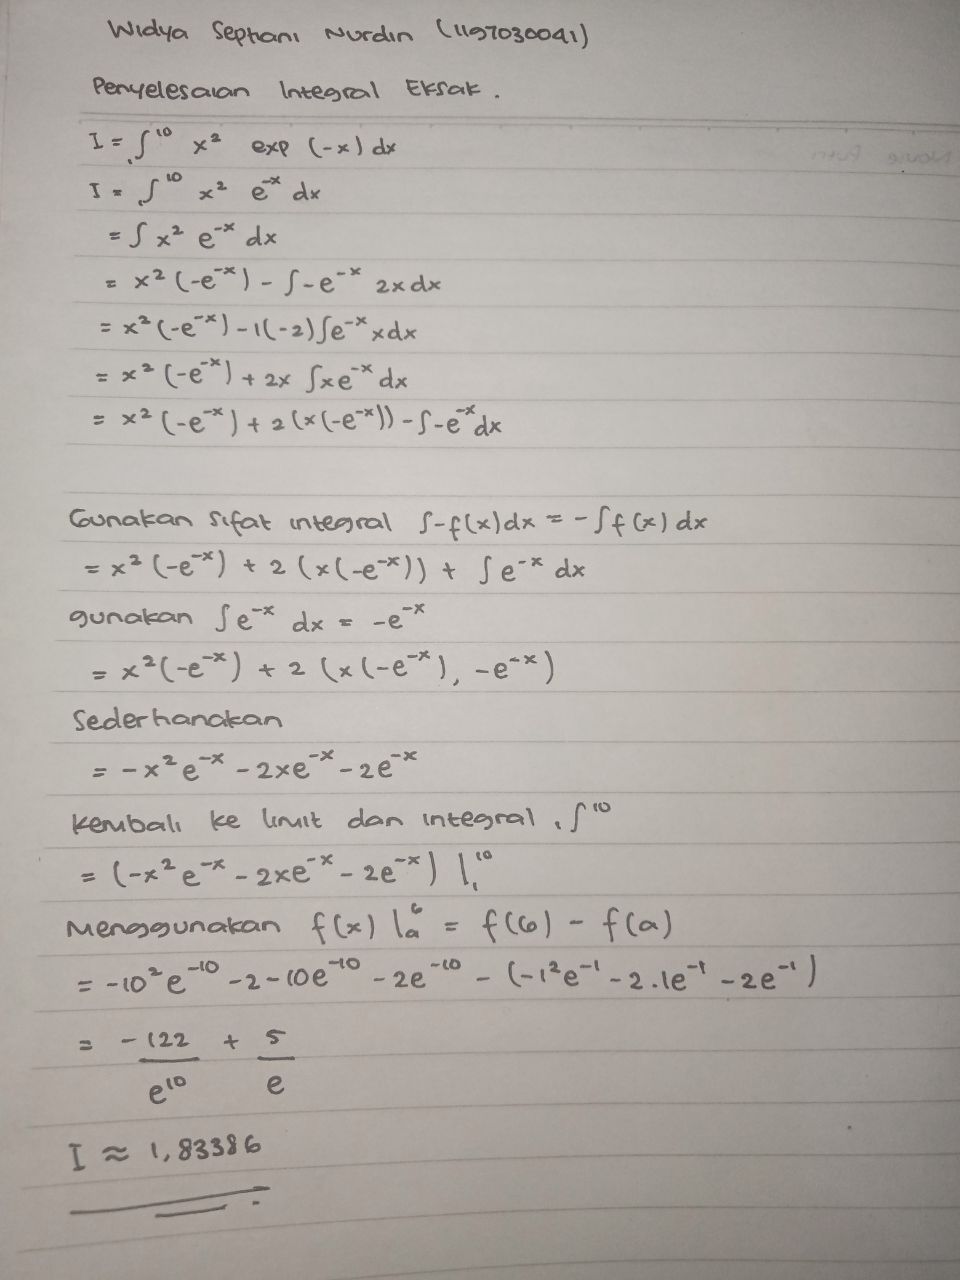 Widya Septiani Nurdin (1197030041)
Penyelesaian Integral Eksak.
I = ₁∫¹⁰ x² exp (-x) dx
I = ₁∫¹⁰ x² e⁻ˣ dx
= ∫ x² e⁻ˣ dx
= x² (-e⁻ˣ) - ∫-e⁻ˣ 2x dx
= x² (-e⁻ˣ) - 1(-2) ∫e⁻ˣ x dx
= x² (-e⁻ˣ) + 2x ∫xe⁻ˣ dx
= x² (-e⁻ˣ) + 2 (x(-e⁻ˣ)) - ∫-e⁻ˣ dx
Gunakan sifat integral ∫-f(x)dx = -∫f(x) dx
= x² (-e⁻ˣ) + 2 (x(-e⁻ˣ)) + ∫e⁻ˣ dx
gunakan ∫e⁻ˣ dx = -e⁻ˣ
= x² (-e⁻ˣ) + 2 (x(-e⁻ˣ), -e⁻ˣ)
Sederhanakan
= -x² e⁻ˣ - 2xe⁻ˣ - 2e⁻ˣ
Kembali ke limit dan integral ₁∫¹⁰
= (-x² e⁻ˣ - 2xe⁻ˣ - 2e⁻ˣ) |₁¹⁰
Menggunakan f(x) |ₐᵇ = f(b) - f(a)
= -10² e⁻¹⁰ - 2 - 10e⁻¹⁰ - 2e⁻¹⁰ - (-1² e⁻¹ - 2.1e⁻¹ - 2e⁻¹)
= -122/e¹⁰ + 5/e
I ≈ 1,83386